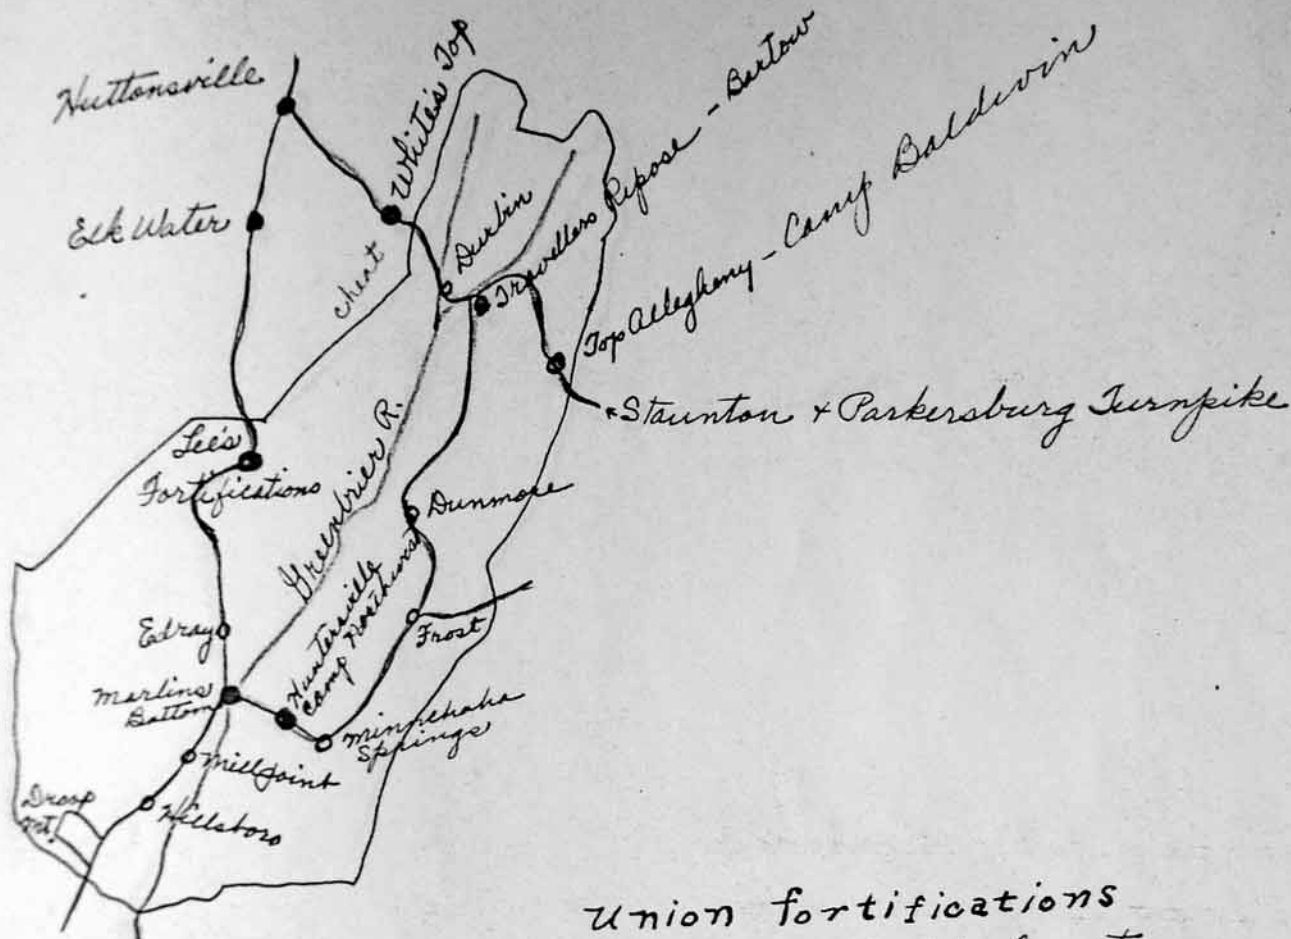 Huttonsville
White's Top
Elk Water
Cheat
Durbin
Travellers Repose - Bartow
Top Allegheny - Camp Baldwin
Staunton + Parkersburg Turnpike
Lee's
Fortifications
Greenbrier R.
Dunmore
Huntersville
Camp Northwest
Frost
Edray
Marlins
Bottom
Minnehaha
Springs
Mill Point
Hillsboro
Droop
Mt.
Union fortifications